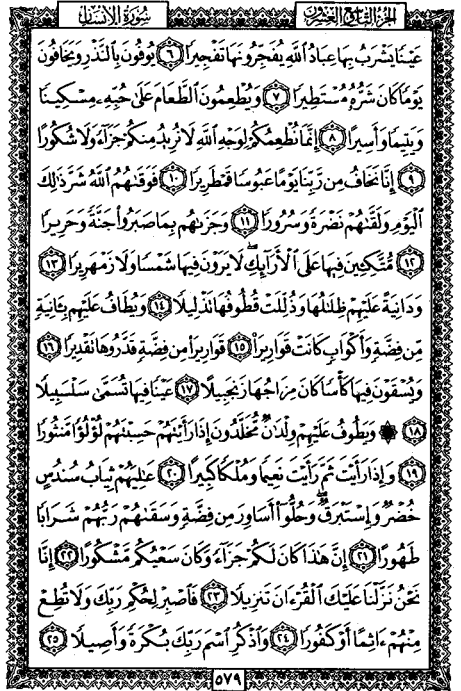 سُورَةُ الإِنسَانِ
الجُزْءُ التَّاسِعُ وَالعِشْرُونَ
عَيْنًا يَشْرَبُ بِهَا عِبَادُ اللَّهِ يُفَجِّرُونَهَا تَفْجِيرًا ٦ يُوفُونَ بِالنَّذْرِ وَيَخَافُونَ
يَوْمًا كَانَ شَرُّهُ مُسْتَطِيرًا ٧ وَيُطْعِمُونَ الطَّعَامَ عَلَىٰ حُبِّهِ مِسْكِينًا
وَيَتِيمًا وَأَسِيرًا ٨ إِنَّمَا نُطْعِمُكُمْ لِوَجْهِ اللَّهِ لَا نُرِيدُ مِنكُمْ جَزَاءً وَلَا شُكُورًا
٩ إِنَّا نَخَافُ مِن رَّبِّنَا يَوْمًا عَبُوسًا قَمْطَرِيرًا ١٠ فَوَقَىٰهُمُ اللَّهُ شَرَّ ذَٰلِكَ
الْيَوْمِ وَلَقَّىٰهُمْ نَضْرَةً وَسُرُورًا ١١ وَجَزَىٰهُم بِمَا صَبَرُوا جَنَّةً وَحَرِيرًا
١٢ مُّتَّكِئِينَ فِيهَا عَلَى الْأَرَائِكِ ۖ لَا يَرَوْنَ فِيهَا شَمْسًا وَلَا زَمْهَرِيرًا ١٣
وَدَانِيَةً عَلَيْهِمْ ظِلَٰلُهَا وَذُلِّلَتْ قُطُوفُهَا تَذْلِيلًا ١٤ وَيُطَافُ عَلَيْهِم بِـَٔانِيَةٍ
مِّن فِضَّةٍ وَأَكْوَابٍ كَانَتْ قَوَارِيرَا۠ ١٥ قَوَارِيرَا۟ مِن فِضَّةٍ قَدَّرُوهَا تَقْدِيرًا ١٦
وَيُسْقَوْنَ فِيهَا كَأْسًا كَانَ مِزَاجُهَا زَنجَبِيلًا ١٧ عَيْنًا فِيهَا تُسَمَّىٰ سَلْسَبِيلًا
١٨ ۞ وَيَطُوفُ عَلَيْهِمْ وِلْدَٰنٌ مُّخَلَّدُونَ إِذَا رَأَيْتَهُمْ حَسِبْتَهُمْ لُؤْلُؤًا مَّنثُورًا
١٩ وَإِذَا رَأَيْتَ ثَمَّ رَأَيْتَ نَعِيمًا وَمُلْكًا كَبِيرًا ٢٠ عَٰلِيَهُمْ ثِيَابُ سُندُسٍ
خُضْرٌ وَإِسْتَبْرَقٌ ۖ وَحُلُّوا أَسَاوِرَ مِن فِضَّةٍ وَسَقَىٰهُمْ رَبُّهُمْ شَرَابًا
طَهُورًا ٢١ إِنَّ هَٰذَا كَانَ لَكُمْ جَزَاءً وَكَانَ سَعْيُكُم مَّشْكُورًا ٢٢ إِنَّا
نَحْنُ نَزَّلْنَا عَلَيْكَ الْقُرْءَانَ تَنزِيلًا ٢٣ فَاصْبِرْ لِحُكْمِ رَبِّكَ وَلَا تُطِعْ
مِنْهُمْ ءَاثِمًا أَوْ كَفُورًا ٢٤ وَاذْكُرِ اسْمَ رَبِّكَ بُكْرَةً وَأَصِيلًا ٢٥
٥٧٩